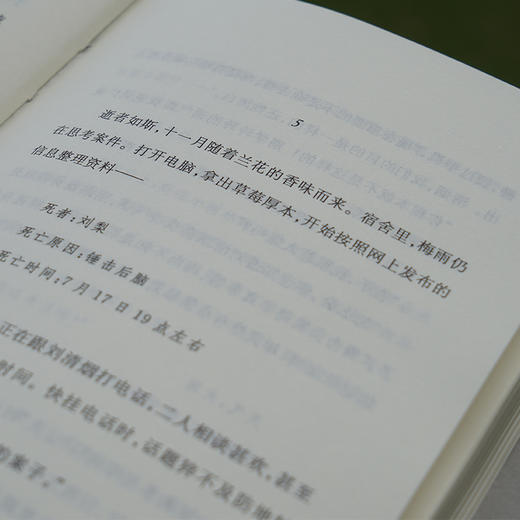 5
逝者如斯，十一月随着兰花的香味而来。宿舍里，梅雨仍
在思考案件。打开电脑，拿出草莓厚本，开始按照网上发布的
信息整理资料——
死者：刘梨
死亡原因：锤击后脑
死亡时间：7月17日19点左右
正在跟刘清烟打电话，二人相谈甚欢，甚至
时间。快挂电话时，话题猝不及防地
的案子。”